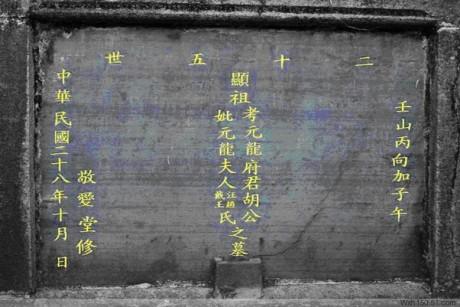 二十五世
壬山丙向加子午
顯祖
考元龍府君胡公
妣元龍夫人
氏之墓
敬愛堂修
中華民國二十八年十月 日